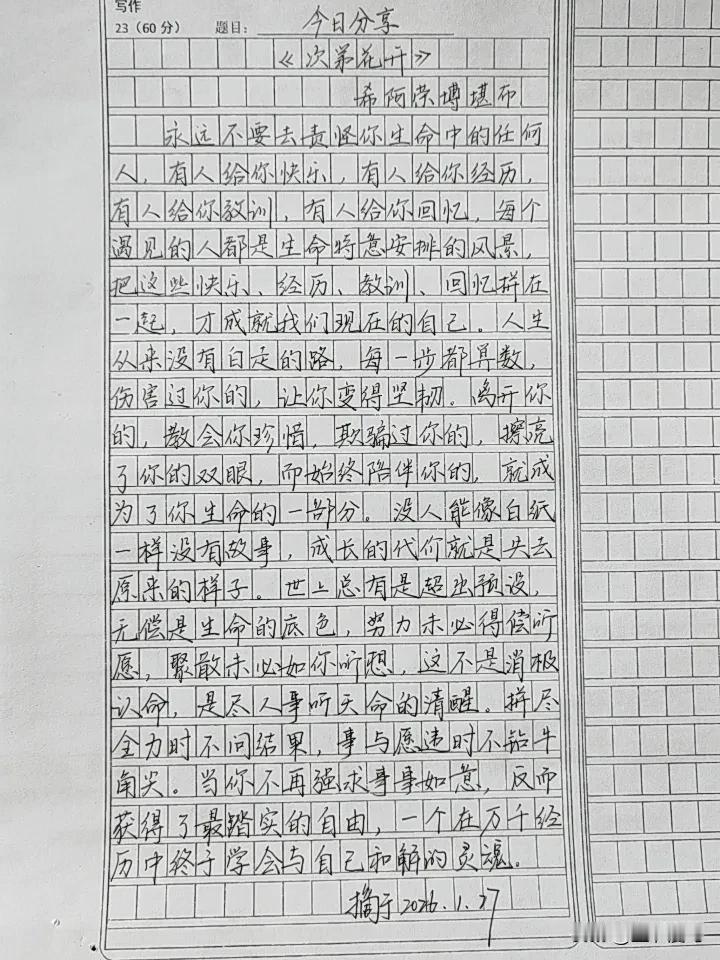 写作
23（60分） 题目：今日分享
《次第花开》
希阿荣博堪布
永远不要去责怪你生命中的任何
人，有人给你快乐，有人给你经历，
有人给你教训，有人给你回忆，每个
遇见的人都是生命特意安排的风景，
把这些快乐、经历、教训、回忆拼在
一起，才成就我们现在的自己。人生
从来没有白走的路，每一步都算数，
伤害过你的，让你变得坚韧。离开你
的，教会你珍惜，欺骗过你的，擦亮
了你的双眼，而始终陪伴你的，就成
为了你生命的一部分。没人能像白纸
一样没有故事，成长的代价就是失去
原来的样子。世上总有是超出预设，
无偿是生命的底色，努力未必得偿所
愿，聚散未必如你所想，这不是消极
认命，是尽人事听天命的清醒。拼尽
全力时不问结果，事与愿违时不钻牛
角尖。当你不再强求事事如意，反而
获得了最踏实的自由，一个在万千经
历中终于学会与自己和解的灵魂。
摘于2026.1.27